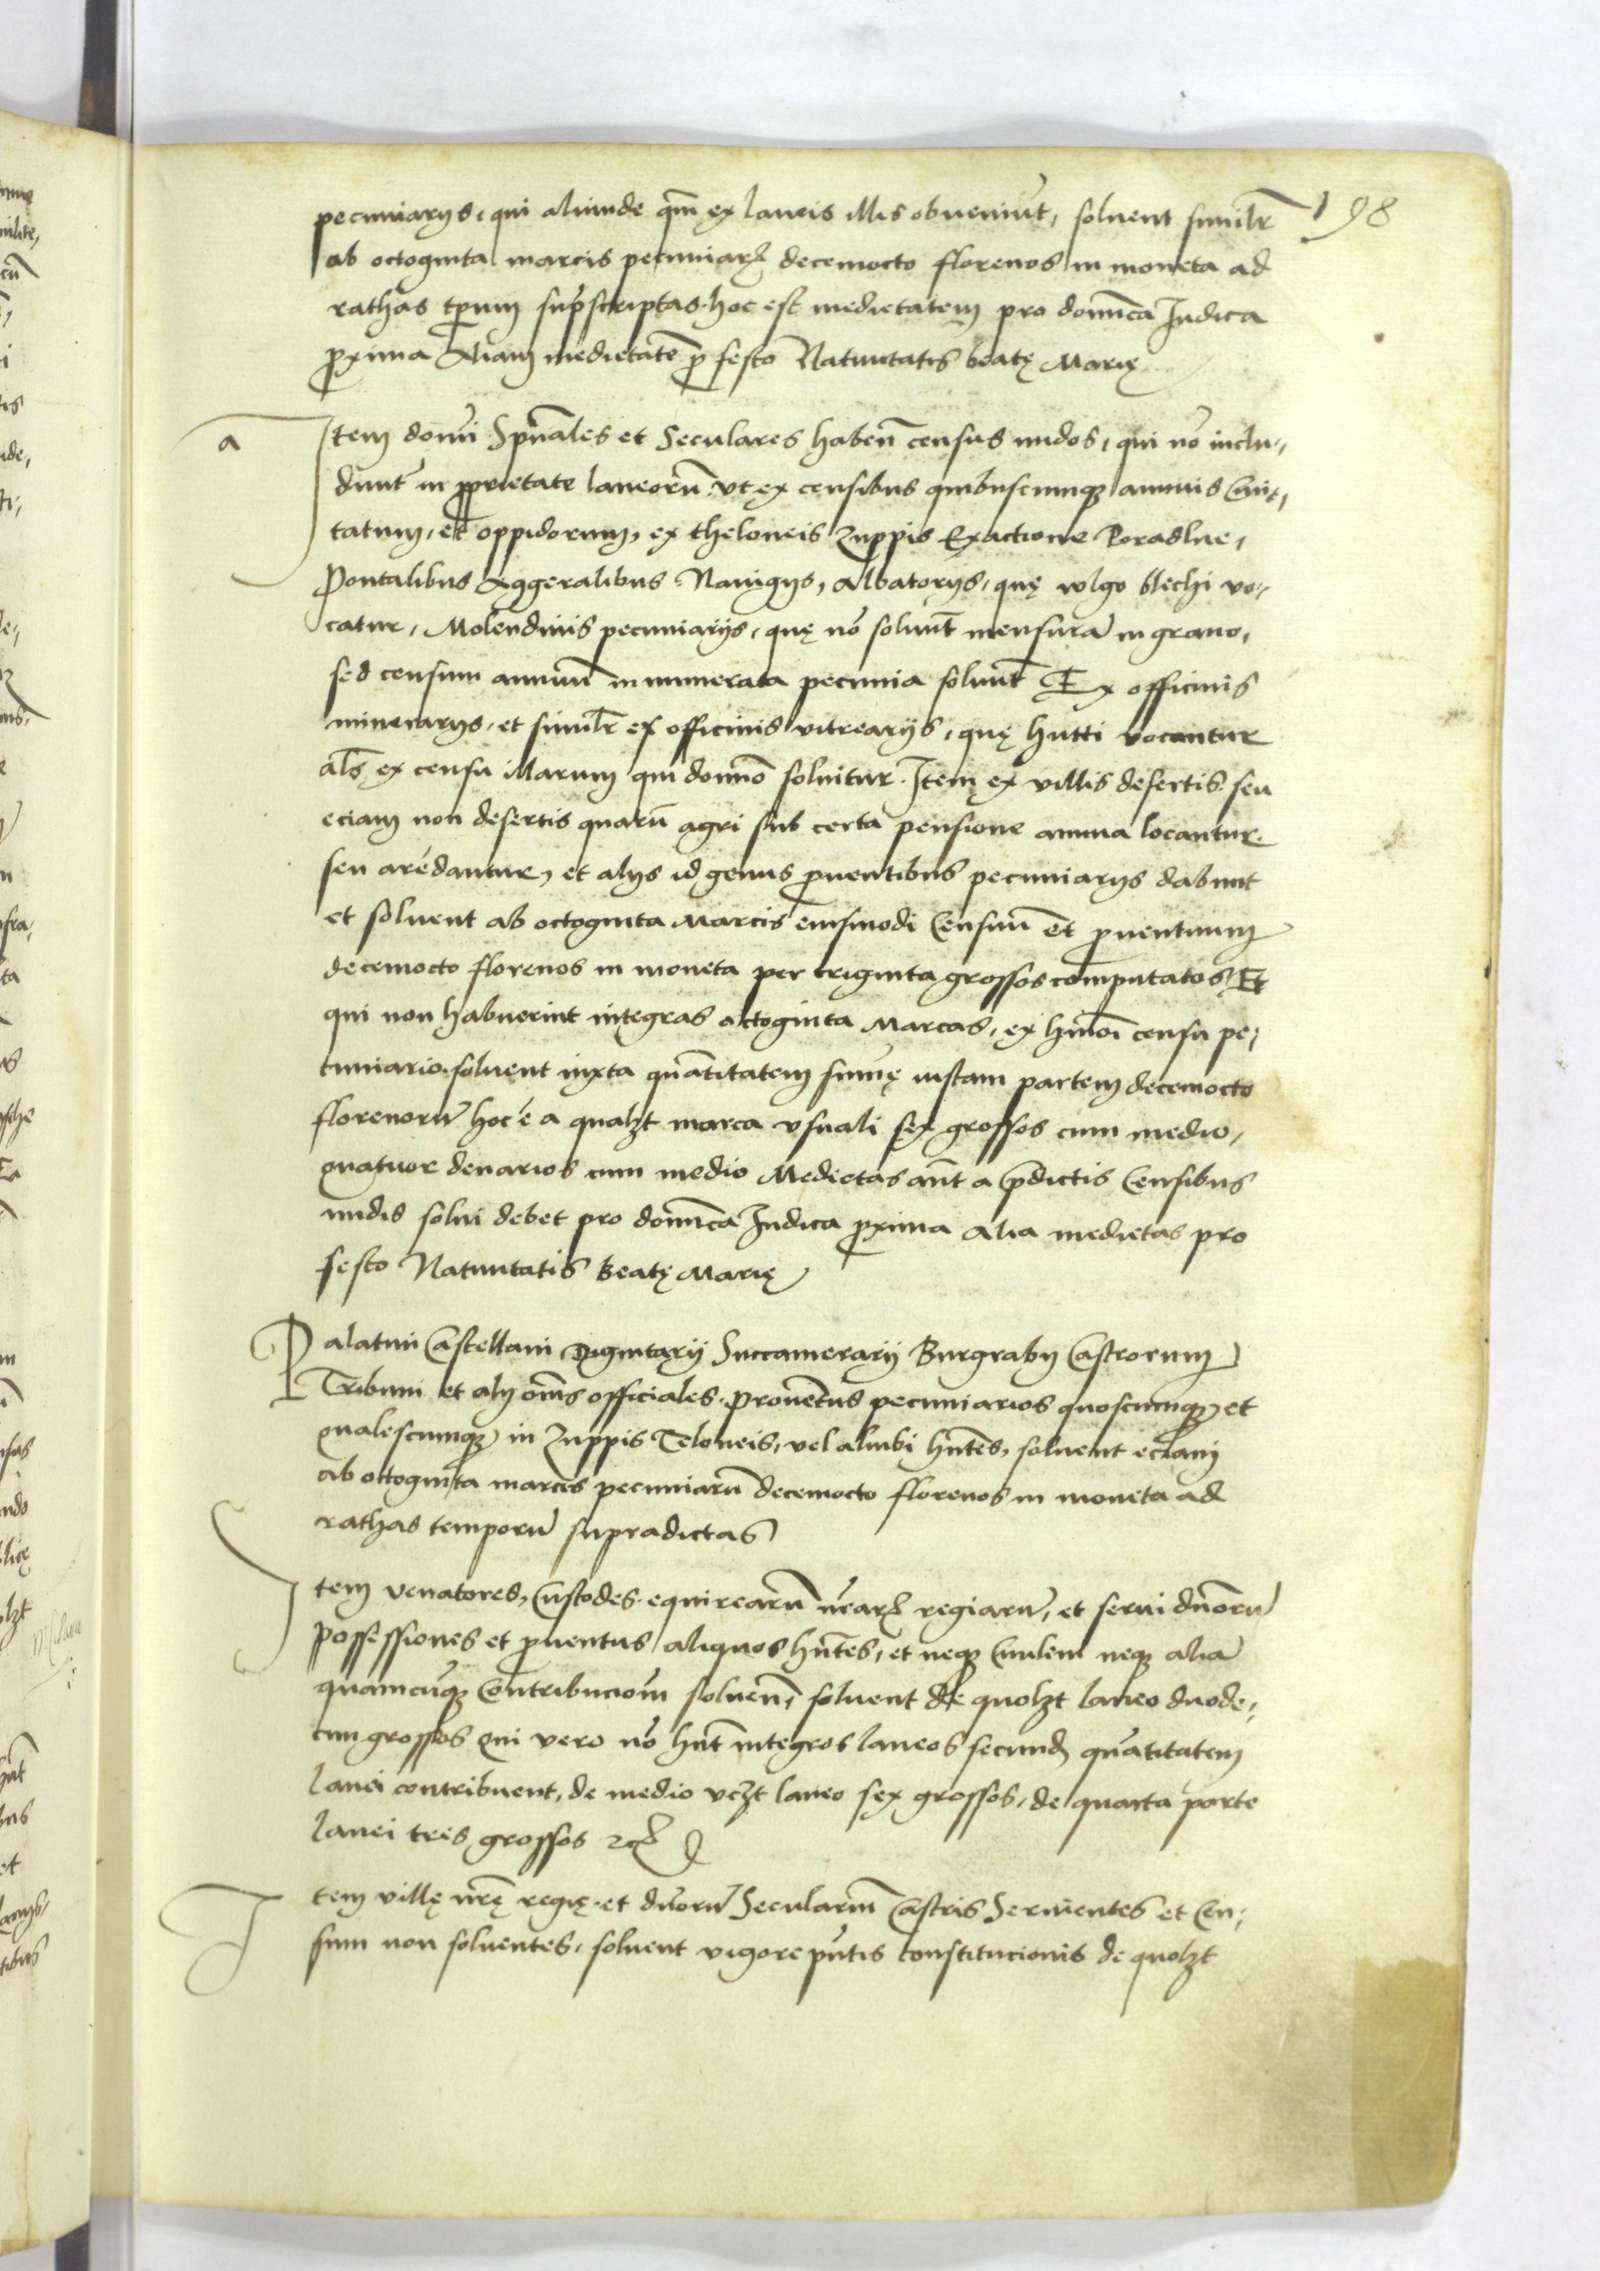 198
pecuniarijs, qui aliunde qm̃ ex laneis illis obveniũt, solvent similr̃
ab octoginta marcis pecuniarꝝ decemocto florenos in moneta ad
rathas tp̃rum sup̃scriptas. hoc est medietatem pro domĩca Iudica
ꝓxima Aliam medietatẽ ꝓ festo Nativitatis beatę Marię
a
Item domĩ Sp̃uales et Seculares habeñ census nudos, qui nõ inclu,
dunt̃ in ꝓprietate laneorũ, vt ex censibus quibuscumqꝫ annuis Civi,
tatum, et oppidorum, ex theloneis Zuppis Exactione Poradlne,
Pontalibus Aggeralibus Navigijs, Albatorijs, quę volgo blechi vo,
catur, Molendinis pecuniarijs, quę nõ solvũt mensurã in grano,
sed censum annuũ in numerata pecunia solvũt Ex officinis
minerarijs, et similr̃ ex officinis vitrearijs, quę hutti vocantur
al̃s ex censu illarum qui domĩo solvitur. Item ex villis desertis seu
eciam non desertis quarũ agri sub certa pensione annua locantur
seu arẽdantur, et alijs id genus ꝓventibus pecuniarijs dabunt
et solvent ab octoginta Marcis eiusmodi Censuũ et ꝓventuum
decemocto florenos in moneta per triginta grossos computatos Et
qui non habuerint integras octoginta Marcas, ex hm̃oi censu pe,
cuniario solvent iuxta quãtitatem sum̃ę iustam partem decemocto
florenorũ hoc ẽ a qualꝫt marca vsuali sex grossos cum medio,
quatuor denarios cum medio Medietas aũt a p̃dictis Censibus
nudis solvi debet pro domĩca Iudica ꝓxima Alia medietas pro
festo Nativitatis Beatę Marię
Palatini Castellani Dignitarij Succamerarij Burgrabij Castrorum
Tribuni et alij om̃s officiales. Provẽtus pecuniarios quoscumqꝫ et
qualescumqꝫ in Zuppis Teloneis, vel alicubi hñtes, solvent eciam
ab octoginta marcis pecuniarũ decemocto florenos in moneta ad
rathas temporũ supradictas
Item Venatores, Custodes equirearũ nr̃arꝝ regiarũ, et servi dñorũ
possessiones et ꝓventus aliquos hñtes, et neqꝫ Civilem neqꝫ aliã
quamcũqꝫ Contribucioñ solveñ, solvent de quolꝫt laneo duode,
cim grossos Qui vero nõ hñt integros laneos secund̃ quãtitatem
lanei contribuent, de medio vcꝫt laneo sex grossos, de quarta parte
lanei tres grossos ꝛcꝭ
Item villę nr̃ę regię et dñorũ Seculariũ Castris Servientes et Cen,
sum non solventes, solvent vigore p̃ntis constitucionis de quolꝫt